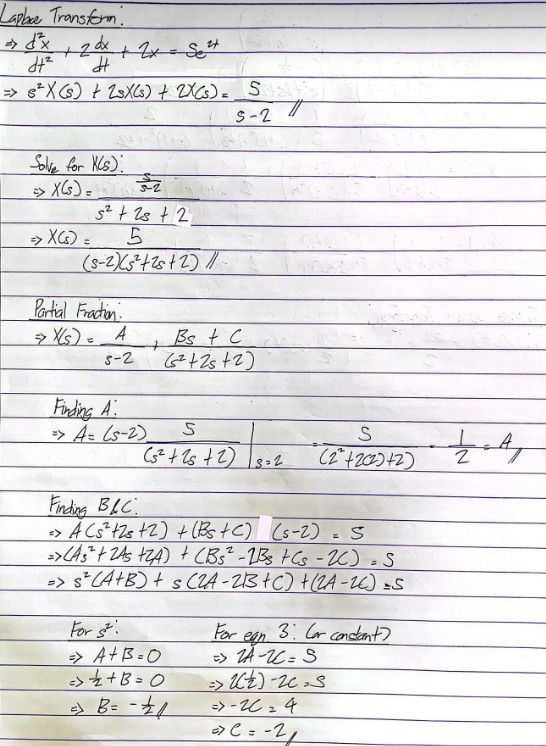 Laplace Transform:
⇒ d²x/dt² + 2 dx/dt + 2x = 5e^2t
⇒ s²X(s) + 2sX(s) + 2X(s) = 5/(s-2) //
Solve for X(s):
⇒ X(s) = (5/(s-2))/(s² + 2s + 2)
⇒ X(s) = 5/((s-2)(s²+2s+2)) //
Partial Fraction:
⇒ X(s) = A/(s-2) + (Bs + C)/(s²+2s+2)
Finding A:
⇒ A = (s-2) 5/(s²+2s+2) |s=2 = 5/(2²+2(2)+2) = 1/2 = A //
Finding B&C:
⇒ A(s²+2s+2) + (Bs+C) (s-2) = 5
⇒ (As²+2As+2A) + (Bs²-2Bs+Cs-2C) = 5
⇒ s²(A+B) + s(2A-2B+C) + (2A-2C) = 5
For s²: For eqn 3: (or constant)
⇒ A+B=0 ⇒ 2A-2C=5
⇒ ½+B=0 ⇒ 2(½)-2C=5
⇒ B= -½ // ⇒ -2C = 4
⇒ C = -2 //